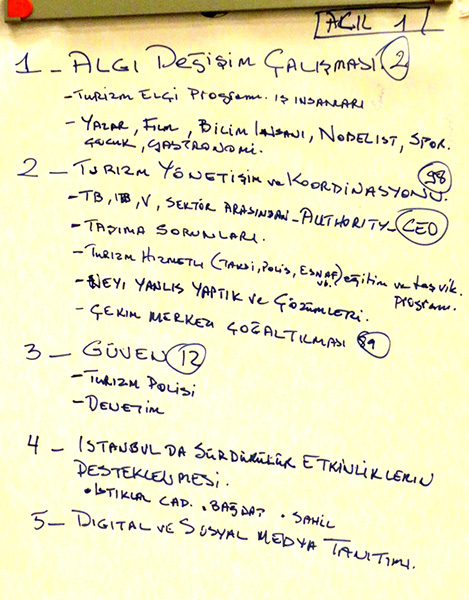 ACİL 1
1 - ALGI DEĞİŞİM ÇALIŞMASI 2
- TURİZM ELÇİ PROGRAMI. İŞ İNSANLARI
- YAZAR, FİLM, BİLİM İNSANI, NOBELİST, SPOR.
ÇOCUK, GASTRONOMİ.
2 - TURİZM YÖNETİŞİM ve KOORDİNASYONU. 98
- TB, İBB, V, SEKTÖR ARASINDAN - AUTHORITY - CEO
- TAŞIMA SORUNLARI.
- TURİZM HİZMETLİ (TAKSİ, POLİS, ESNAF vb.) eğitim ve teşvik
program.
- NEYİ YANLIŞ YAPTIK ve ÇÖZÜMLERİ.
- ÇEKİM MERKEZİ ÇOĞALTILMASI 89
3 - GÜVEN 12
- TURİZM POLİSİ
- DENETİM
4 - İSTANBUL DA SÜRDÜRÜLÜR ETKİNLİKLERİN
DESTEKLENMESİ.
• İSTİKLAL CAD. • BAĞDAT • SAHİL
5 - DIGITAL VE SOSYAL MEDYA TANITIMI.